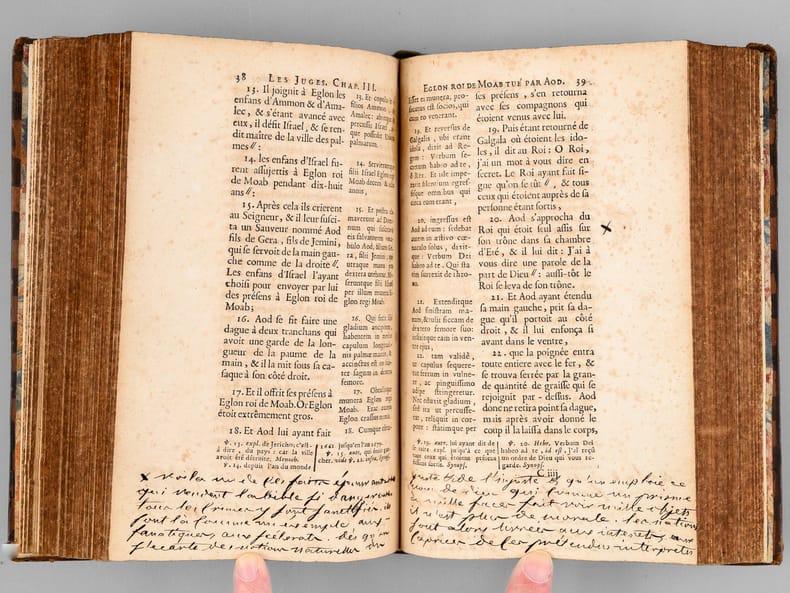 38 LES JUGES. CHAP. III.
13. Il joignit à Eglon les
enfans d'Ammon & d'Ama-
lec, & s'étant avancé avec
eux, il défit Israel, & se ren-
dit maître de la ville des pal-
mes //:
14. les enfans d'Israel fu-
rent assujettis à Eglon roi
de Moab pendant dix-huit
ans //:
15. Après cela ils crierent
au Seigneur, & il leur susci-
ta un Sauveur nommé Aod
fils de Gera, fils de Jemini,
qui se servoit de la main gau-
che comme de la droite //.
Les enfans d'Israel l'ayant
choisi pour envoyer par lui
des présens à Eglon roi de
Moab;
16. Aod se fit faire une
dague à deux tranchans qui
avoit une garde de la lon-
gueur de la paume de la
main, & il la mit sous sa ca-
saque à son côté droit.
17. Et il offrit ses présens à
Eglon roi de Moab. Or Eglon
étoit extrêmement gros.
18. Et Aod lui ayant fait
13. Et copulavit ei
filios Ammon, &
Amalec: abiitque &
percussit Israel,
que possedit Urbem
palmarum.
14. Servieruntque
filii Israel Eglon regi
Moab decem & octo
annis,
15. Et postea cla-
maverunt ad Domi-
num qui suscitavit
eis salvatorem voca-
bulo Aod, filium Ge-
ra, filii Jemini, qui
utraque manu pro
dextera utebatur. Mi-
seruntque filii Israel
per illum munera E-
glon regi Moab.
16. Qui fecit sibi
gladium ancipitem,
habentem in medio
capulum longitudi-
nis palmæ manus, &
accinctus est eo sub-
ter sagum in dextro
femore.
17. Obtulitque
munera Eglon regi
Moab. Erat autem
Eglon crassus nimis.
18. Cumque obtu-
℣. 13. expl. de Jericho; c'est-
à dire, du pays: car la ville
avoit été détruite. Menoch.
℣. 14. depuis l'an du monde
2661 jusqu'en l'an 2679.
℣. 15. autr. qui étoit gau-
cher. vide ℣. 22. infra, Synops.
x voila un de ces faits
qui rendent la bible si dangereuse
tous les crimes y sont sanctifiés. ils
sont là comme un exemple aux
fanatiques, aux scelerats. dès qu'on
s'ecarte des notions naturelles du
EGLON ROI DE MOAB TUÉ PAR AOD. 39
lisset ei munera, pro-
secutus est socios, qui
cum eo venerant.
19. Et reversus de
Galgalis, ubi erant
idola, dixit ad Re-
gem: Verbum se-
cretum habeo ad te,
ô Rex. Et ille impe-
ravit silentium: egres-
sisque omnibus qui
circa eum erant,
20. ingressus est
Aod ad eum: sedebat
autem in æstivo cœ-
naculo solus, dixit-
que: Verbum Dei
habeo ad te. Qui sta-
tim surrexit de thro-
no.
21. Extenditque
Aod sinistram ma-
num, & tulit siccam de
dextero femore suo:
infixitque eam in ven-
tre ejus,
22. tam validè,
ut capulus sequere-
tur ferrum in vulne-
re, ac pinguissimo
adipe stringeretur.
Nec eduxit gladium,
sed ita ut percusse-
rat, reliquit in cor-
pore: statimque per
ses présens, s'en retourna
avec ses compagnons qui
étoient venus avec lui.
19. Puis étant retourné de
Galgala où étoient les ido-
les, il dit au Roi: O Roi,
j'ai un mot à vous dire en
secret. Le Roi ayant fait si-
gne qu'on se tût //, & tous
ceux qui étoient auprès de sa
personne étant sortis,
20. Aod s'approcha du
Roi qui étoit seul assis sur
son trône dans sa chambre
d'Eté, & il lui dit: J'ai à
vous dire une parole de la
part de Dieu //: aussi-tôt le
Roi se leva de son trône.
x
21. Et Aod ayant étendu
sa main gauche, prit sa da-
gue qu'il portoit au côté
droit, & il lui enfonça si
avant dans le ventre,
22. que la poignée entra
toute entiere avec le fer, &
se trouva serrée par la gran-
de quantité de graisse qui se
rejoignit par-dessus. Aod
donc ne retira point sa dague,
mais après avoir donné le
coup il la laissa dans le corps,
℣. 19. autr. lui ayant dit de
se taire, & que cependant tous
ceux qui étoient présens
sortis. Synops.
℣. 20. Hebr. Verbum Dei
habeo ad te, id est, J'ai reçû
un ordre de Dieu qui vous re-
garde. Synops.
C iiij
juste & de l'injuste & qu'on emploie ce
nom de dieu qui comme un prisme
a mille faces fait voir mille objets
il n'est plus de morale. les nations
sont alors livrées aux interets, aux
caprices de ses pretendus interpretes